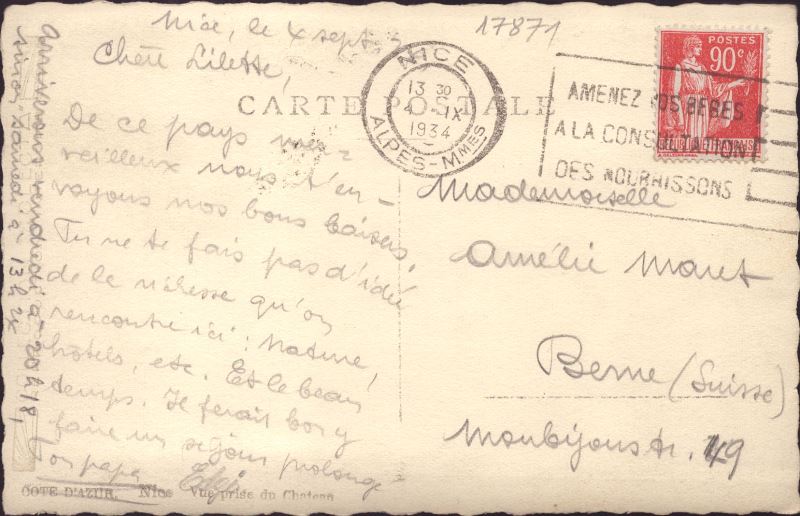 Nice, le 4 sept.
17871
Chère Lilette,
CARTE POSTALE
NICE
13 30
IX
1934
ALPES-MMES
POSTES
90c
AMENEZ VOS BEBES
A LA CONSULTATION
DES NOURRISSONS
De ce pays mer=
veilleux nous t'en-
voyons nos bons baisers.
Tu ne te fais pas d'idée
de la richesse qu'on
rencontre ici: Nature,
hôtels, etc. Et le beau
temps. Il ferait bon y
faire un séjour prolongé
Ton papa
Arriverons vendredi à 20h18,
sinon samedi à 13h24
Mademoiselle
Amélie Maret
Berne (Suisse)
Monbijoustr. 49
COTE D'AZUR. Nice Vue prise du Chateau